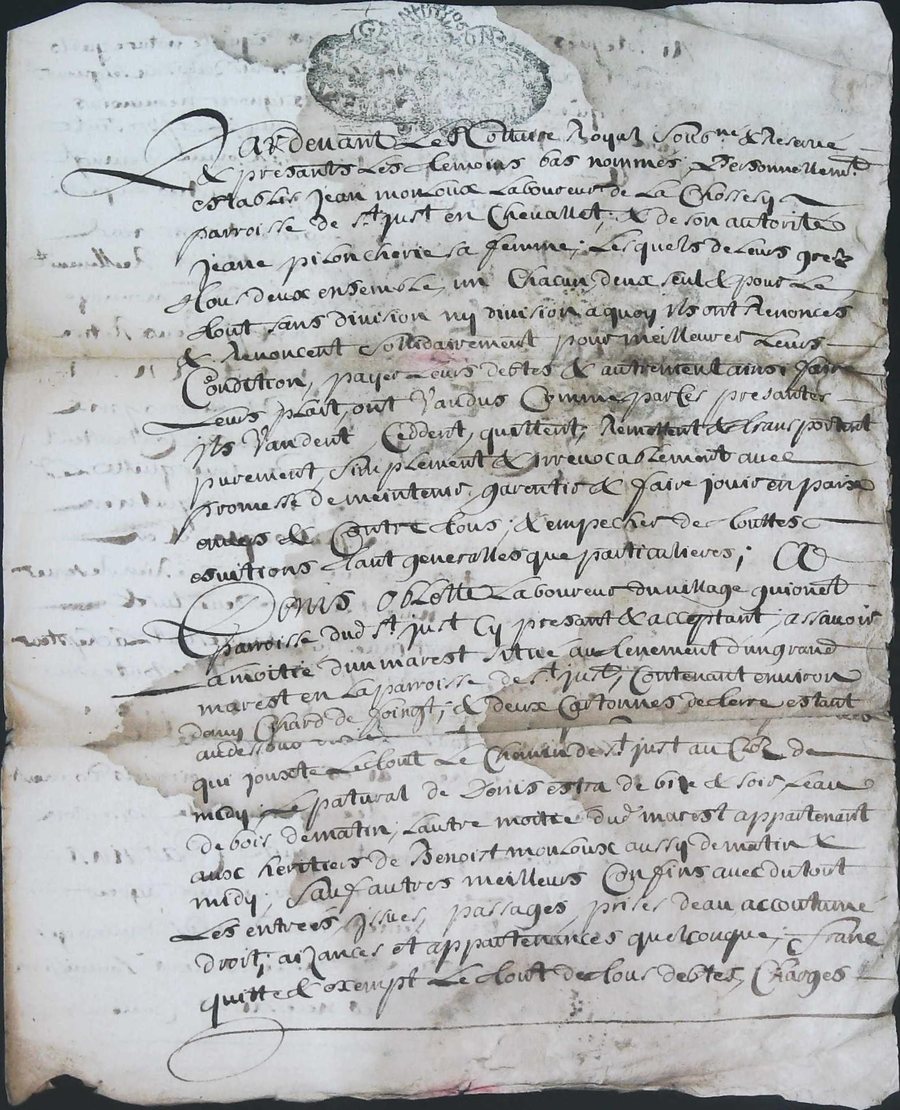 Pardevant Le Nottaire Royal Soubs.né & Reservé
& presants Les temoins bas nommes, Personnellem.t
establis Jean mouloux Laboureur de La
parroisse de s.t just en Chevallet; & de son autorité
jeane sa femme; Lesquels de Leurs gré
tous deux ensemble, un Chacun deux seul & pour Le
tout sans division ny division a quoy ils ont Renonces
& Renoncent sollidairement pour meilleurer Leurs
Condition, payer Leurs debtes & autrement ainsi faire
Leurs plait, ont Vandus Comme par Ces presantes
ils Vandent, Ceddent, quittent, Remettent & transportent
purement, simplement & irrevocablement avec
promesse de meintenir, garentir & faire jouir en paix
envers & Contre tous; & empecher de touttes
esvitions tant generalles que particulieres; A
Denis oblette Laboureur du village
Parroisse dud. s.t just Cy presant & acceptant; assavoir
La moitié dun marest situé au tenement dun grand
marest en La parroisse de s.t just, Contenant environ
demy Chard de foingt; & deux Cartonnes de terre estant
au dessoub
qui jouxte Le tout Le Chemin de s.t just au de
midy; Le patural de Denis de bize & soir, Leau
de bois de matin; Lautre moitié dud. marest appartenant
aux heritiers de Benoist mouloux aussy de matin &
midy; sauf autres meilleurs Confins avec du tout
Les entrees, issues, passages, prises deau accoutumé
droit, aizances et appartenances quelconque; franc
quitte & exempt Le tout de tous debtes, Charges